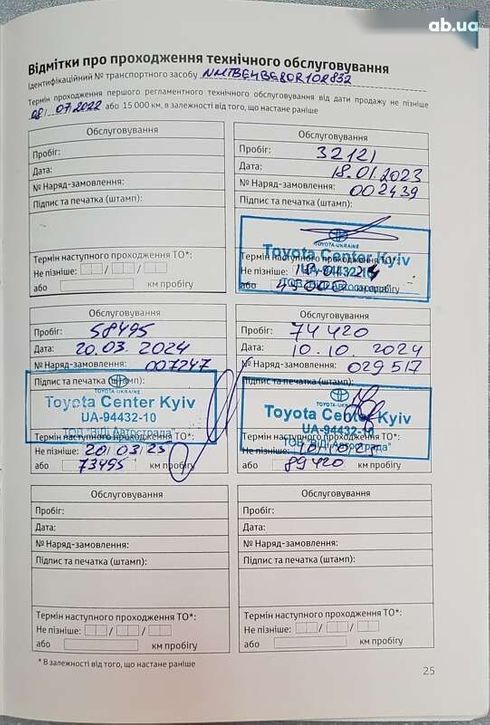 ab.ua
Відмітки про проходження технічного обслуговування
Ідентифікаційний № транспортного засобу NMTBE4BE80R102832
Термін проходження першого регламентного технічного обслуговування від дати продажу не пізніше
08/ 07.2022 або 15 000 км, в залежності від того, що настане раніше
Обслуговування
Пробіг:
Дата:
№ Наряд-замовлення:
Підпис та печатка (штамп):
Термін наступного проходження ТО*:
Не пізніше: / /
або км пробігу
Обслуговування
Пробіг: 32121
Дата: 18.01.2023
№ Наряд-замовлення: 002439
Підпис та печатка (штамп):
TOYOTA-UKRAINE
Toyota Center Kyiv
UA-94432-10
ТОВ "ВІДІ Автострада"
Термін наступного проходження ТО*:
Не пізніше:
або км пробігу
Обслуговування
Пробіг: 58495
Дата: 20.03.2024
№ Наряд-замовлення: 007247
Підпис та печатка (штамп):
TOYOTA-UKRAINE
Toyota Center Kyiv
UA-94432-10
ТОВ "ВІДІ Автострада"
Термін наступного проходження ТО*:
Не пізніше: 20/03/25
або 73495 км пробігу
Обслуговування
Пробіг: 74420
Дата: 10.10.2024
№ Наряд-замовлення: 029517
Підпис та печатка (штамп):
TOYOTA-UKRAINE
Toyota Center Kyiv
UA-94432-10
ТОВ "ВІДІ Автострада"
Термін наступного проходження ТО*:
Не пізніше: 10/10/25
або 89420 км пробігу
Обслуговування
Пробіг:
Дата:
№ Наряд-замовлення:
Підпис та печатка (штамп):
Термін наступного проходження ТО*:
Не пізніше: / /
або км пробігу
Обслуговування
Пробіг:
Дата:
№ Наряд-замовлення:
Підпис та печатка (штамп):
Термін наступного проходження ТО*:
Не пізніше: / /
або км пробігу
* В залежності від того, що настане раніше
25